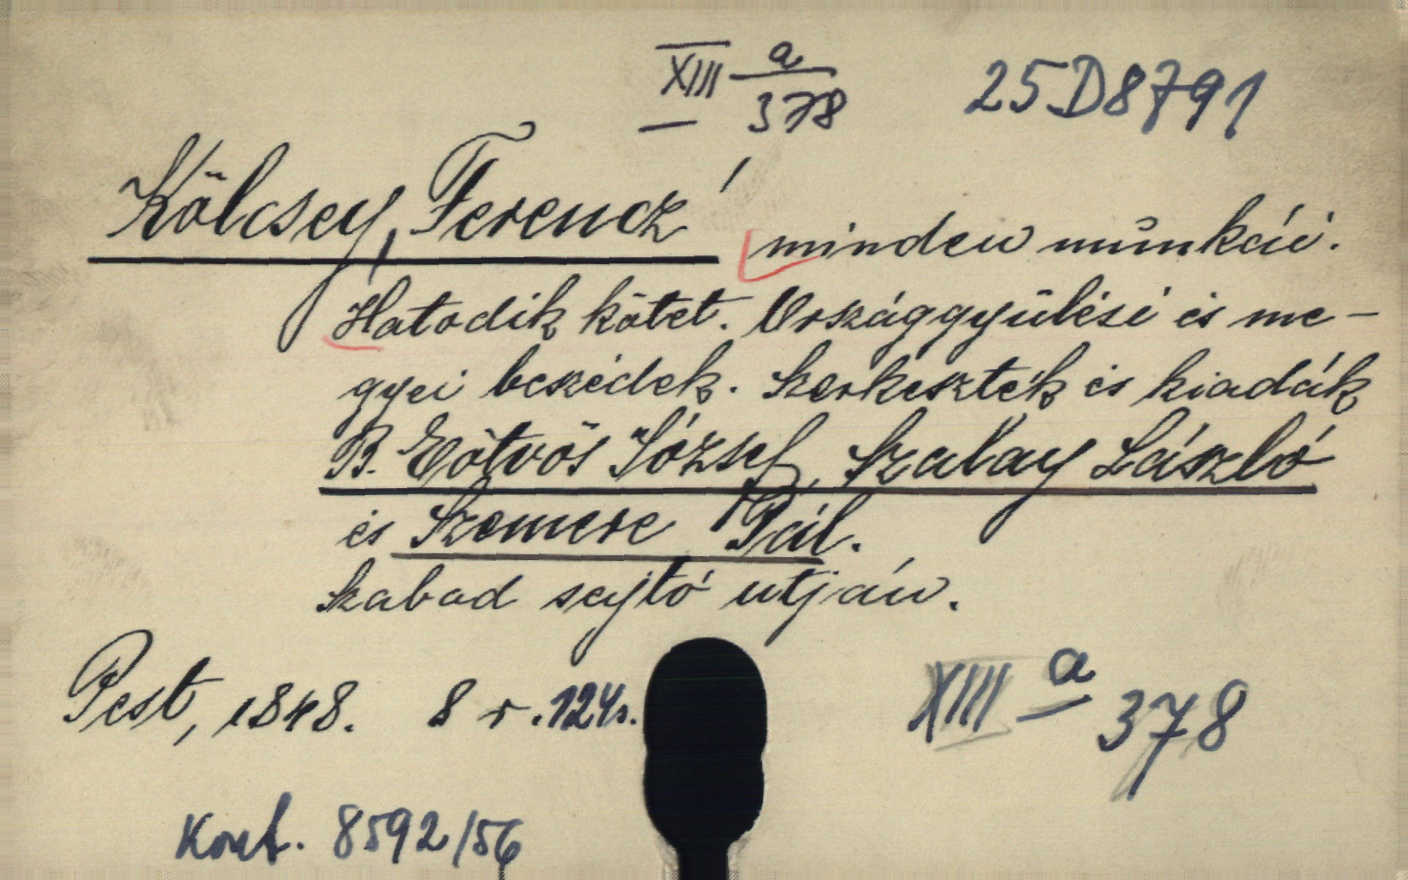 XIII a/378 25D8791
Kölcsey, Ferencz' minden munkái.
Hatodik kötet. Országgyülési és me-
gyei beszédek. Szerkeszték és kiadák
B. Eötvös József, Szalay László
és Szemere Pál.
Szabad sajtó utján.
Pest, 1848. 8 r. 124 s.
XIII a 378
8592/56